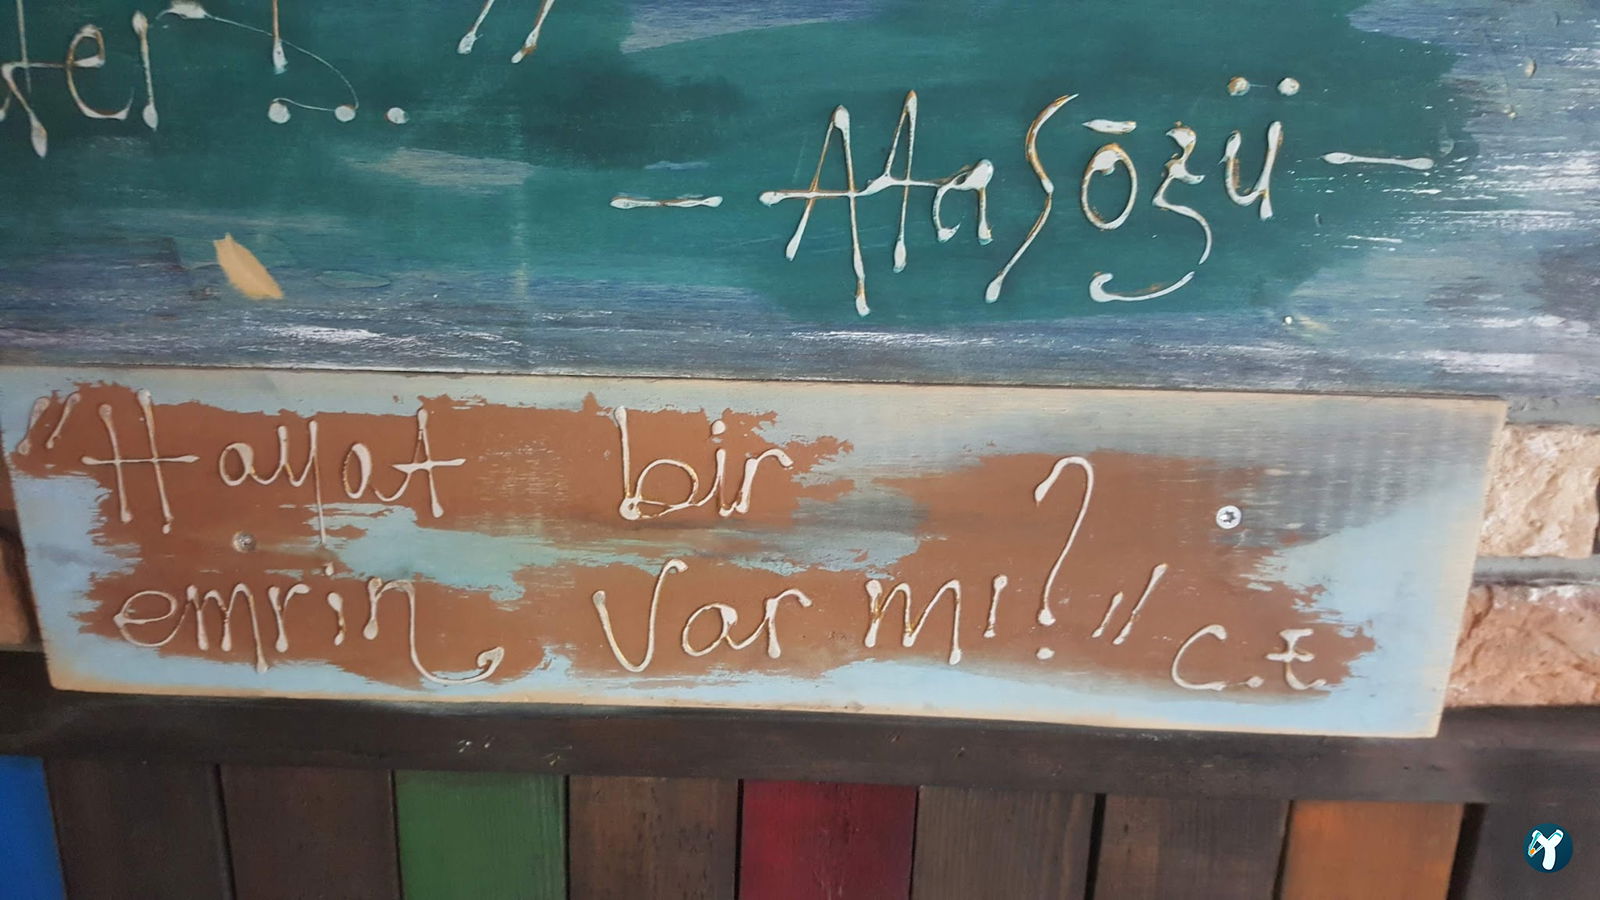 ter!... "
- Atasözü -
"Hayat bir
emrin var mı?" C.E